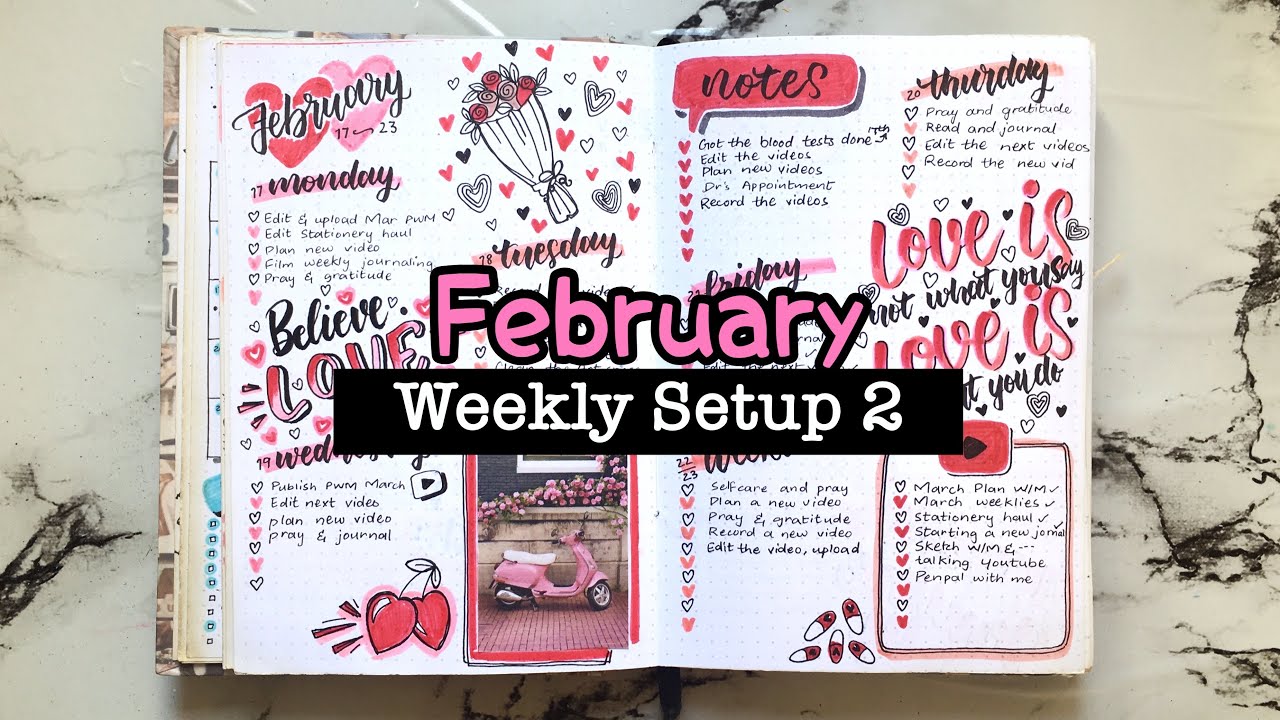 February
17 ~ 23
17 monday
Edit & upload Mar PWM
Edit Stationery haul
Plan new video
Film weekly journaling
Pray & gratitude
Believe
LOVE
18 tuesday
19 wednesday
Publish PWM March
Edit next video
plan new video
pray & journal
February
Weekly Setup 2
notes
Got the blood tests done 17th
Edit the videos
Plan new videos
Dr's Appointment
Record the videos
friday
22
23
Selfcare and pray
Plan a new video
Pray & gratitude
Record a new video
Edit the video, upload
20 thursday
Pray and gratitude
Read and journal
Edit the next videos
Record the new vid
Love is
not what you say
Love is
you do
March Plan W/M
March weeklies
Stationery haul
Starting a new jornal
Sketch W/M &---
talking youtube
Penpal with me